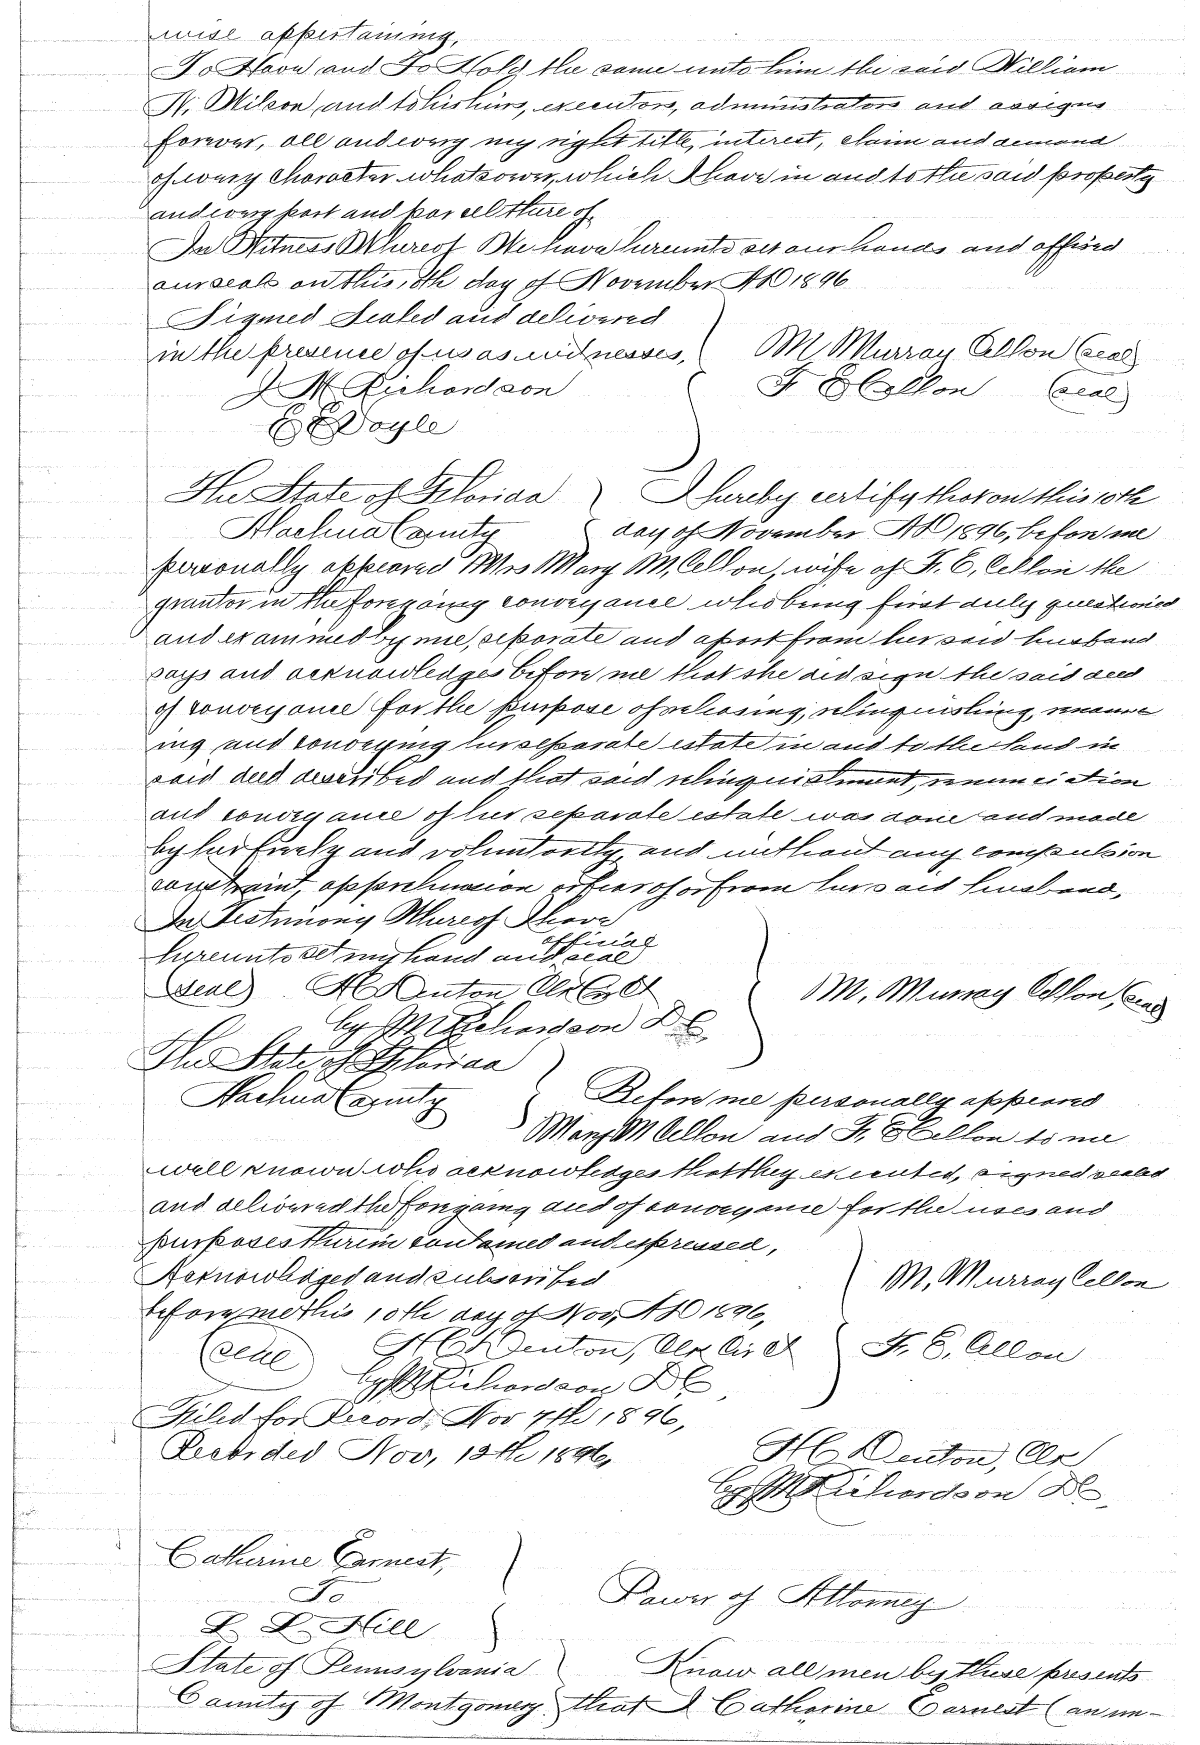 wise appertaining,
To Have and To Hold the same unto him the said William
N. Wilson, and to his heirs, executors, administrators and assigns
forever, all and every my right title, interest, claim and demand
of every character whatsoever, which I have in and to the said property
and every part and parcel there of,
In Witness Whereof We have hereunto set our hands and affixed
our seals on this, 8th day of November AD 1896
Signed Sealed and delivered
in the presence of us as witnesses, M Murray Cellon (seal)
J M Richardson F E Cellon (seal)
E E Doyle
The State of Florida I hereby certify that on this 10th
Alachua County day of November AD 1896, before me
personally appeared Mrs Mary M, Cellon, wife of F. E, Cellon the
grantor in the foregoing conveyance who being first duly questioned
and examined by me, separate and apart from her said husband
says and acknowledges before me that she did sign the said deed
of conveyance for the purpose of releasing, relinquishing, renounc
ing and conveying her separate estate in and to the land in
said deed described and that said relinquishment, renunciation
and conveyance of her separate estate was done and made
by her freely and voluntarily, and without any compulsion
constraint, apprehension or fear of or from her said husband,
In Testimony Whereof I have
hereunto set my hand and official seal
(Seal) H C Denton Clk Cir Ct M. Murray Cellon, (seal)
by M Richardson D C
The State of Florida
Alachua County Before me personally appeared
Mary M Cellon and F. E Cellon to me
well known who acknowledges that they executed, signed sealed
and delivered the foregoing deed of conveyance for the uses and
purposes therein contained and expressed,
Acknowledged and subscribed M. Murray Cellon
before me this 10th day of Nov, AD 1896,
(seal) H C Denton, Clk Cir Ct F. E. Cellon
by M Richardson D C,
Filed for Record, Nov 7th 1896,
Recorded Nov, 12th 1896, H C Denton, Clk
by M Richardson D C,
Catherine Earnest,
To Power of Attorney
L. L. Hill
State of Pennsylvania Know all men by these presents
County of Montgomery that I Catharine Earnest (an un-